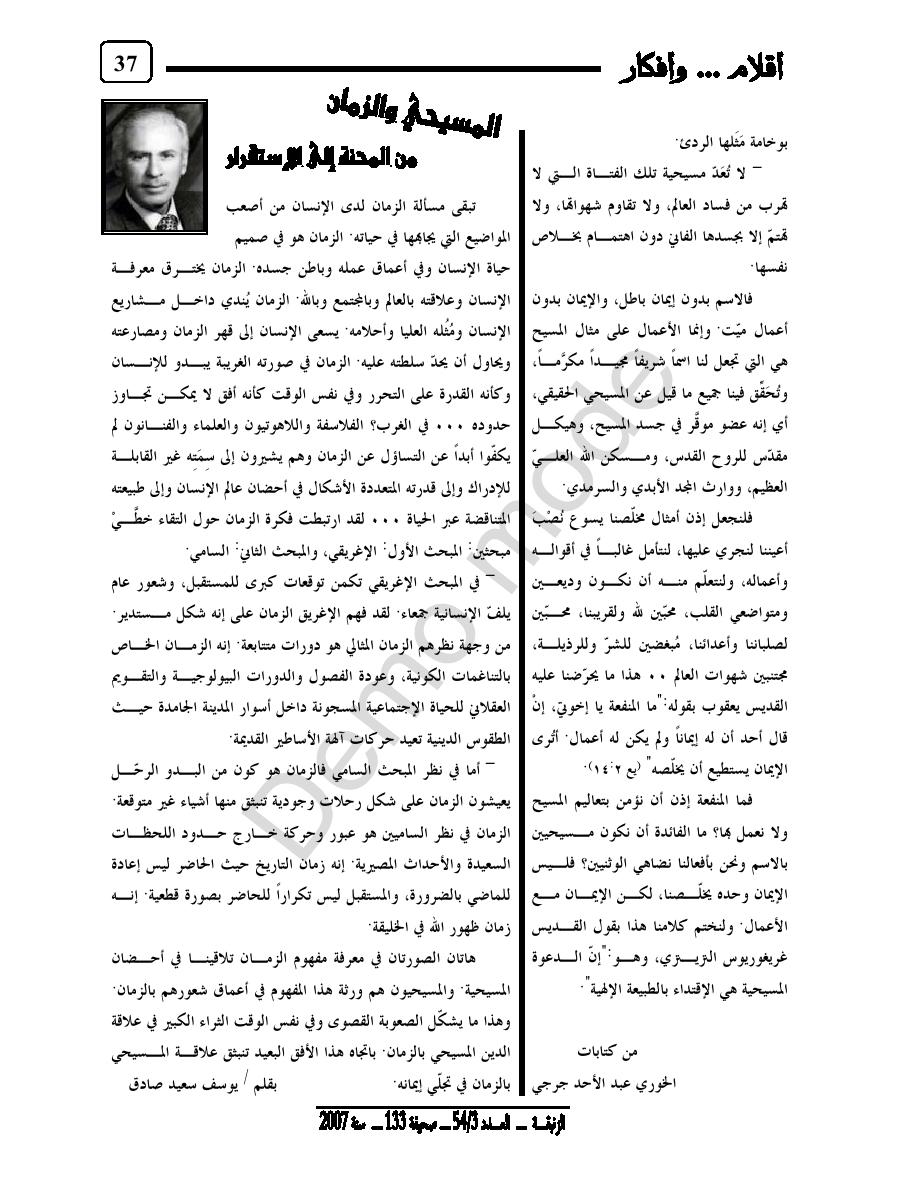 أقلام ... وأفكار
37
بوخامة مَثَلها الردئ.
– لا تُعَدّ مسيحية تلك الفتاة التي لا
تهرب من فساد العالم، ولا تقاوم شهواتها، ولا
تهتمّ إلا بجسدها الفاني دون اهتمام بخلاص
نفسها.
فالاسم بدون إيمان باطل، والإيمان بدون
أعمال ميّت. وإنما الأعمال على مثال المسيح
هي التي تجعل لنا اسماً شريفاً مجيداً مكرَّماً،
وتُحقِّق فينا جميع ما قيل عن المسيحي الحقيقي،
أي إنه عضو موقَّر في جسد المسيح، وهيكل
مقدّس للروح القدس، ومسكن الله العليّ
العظيم، ووارث المجد الأبدي والسرمدي.
فلنجعل إذن أمثال مخلّصنا يسوع نُصْبَ
أعيننا لنجري عليها، لنتأمل غالباً في أقواله
وأعماله، ولنتعلّم منه أن نكون وديعين
ومتواضعي القلب، محبّين لله ولقريبنا، محبّين
لصلباننا وأعدائنا، مُبغضين للشرّ وللرذيلة،
مجتنبين شهوات العالم .. هذا ما يحرّضنا عليه
القديس يعقوب بقوله:"ما المنفعة يا إخوتي، إنْ
قال أحد أن له إيماناً ولم يكن له أعمال. أتُرى
الإيمان يستطيع أن يخلّصه" (يع ٢:١٤).
فما المنفعة إذن أن نؤمن بتعاليم المسيح
ولا نعمل بها؟ ما الفائدة أن نكون مسيحيين
بالاسم ونحن بأفعالنا نضاهي الوثنيين؟ فليس
الإيمان وحده يخلّصنا، لكن الإيمان مع
الأعمال. ولنختم كلامنا هذا بقول القديس
غريغوريوس النزينزي، وهو:"إنّ الدعوة
المسيحية هي الإقتداء بالطبيعة الإلهية".
من كتابات
الخوري عبد الأحد جرجي
المسيحي والزمان
من المحنة إلى الإستقرار
تبقى مسألة الزمان لدى الإنسان من أصعب
المواضيع التي يجابهها في حياته. الزمان هو في صميم
حياة الإنسان وفي أعماق عمله وباطن جسده. الزمان يخترق معرفة
الإنسان وعلاقته بالعالم وبالمجتمع وبالله. الزمان يُندي داخل مشاريع
الإنسان ومُثُله العليا وأحلامه. يسعى الإنسان إلى قهر الزمان ومصارعته
ويحاول أن يحدّ سلطته عليه. الزمان في صورته الغريبة يبدو للإنسان
وكأنه القدرة على التحرر وفي نفس الوقت كأنه أفق لا يمكن تجاوز
حدوده ... في الغرب؟ الفلاسفة واللاهوتيون والعلماء والفنانون لم
يكفّوا أبداً عن التساؤل عن الزمان وهم يشيرون إلى سِمَتِه غير القابلة
للإدراك وإلى قدرته المتعددة الأشكال في أحضان عالم الإنسان وإلى طبيعته
المتناقضة عبر الحياة ... لقد ارتبطت فكرة الزمان حول التقاء خطَّيْ
مبحثين: المبحث الأول: الإغريقي، والمبحث الثاني: السامي.
– في المبحث الإغريقي تكمن توقعات كبرى للمستقبل، وشعور عام
يلفّ الإنسانية جمعاء. لقد فهم الإغريق الزمان على إنه شكل مستدير.
من وجهة نظرهم الزمان المثالي هو دورات متتابعة. إنه الزمان الخاص
بالتناغمات الكونية، وعودة الفصول والدورات البيولوجية والتقويم
العقلاني للحياة الإجتماعية المسجونة داخل أسوار المدينة الجامدة حيث
الطقوس الدينية تعيد حركات آلهة الأساطير القديمة.
– أما في نظر المبحث السامي فالزمان هو كون من البدو الرحّل
يعيشون الزمان على شكل رحلات وجودية تنبثق منها أشياء غير متوقعة.
الزمان في نظر الساميين هو عبور وحركة خارج حدود اللحظات
السعيدة والأحداث المصيرية. إنه زمان التاريخ حيث الحاضر ليس إعادة
للماضي بالضرورة، والمستقبل ليس تكراراً للحاضر بصورة قطعية. إنه
زمان ظهور الله في الخليقة.
هاتان الصورتان في معرفة مفهوم الزمان تلاقينا في أحضان
المسيحية. والمسيحيون هم ورثة هذا المفهوم في أعماق شعورهم بالزمان.
وهذا ما يشكّل الصعوبة القصوى وفي نفس الوقت الثراء الكبير في علاقة
الدين المسيحي بالزمان. باتجاه هذا الأفق البعيد تنبثق علاقة المسيحي
بالزمان في تجلّي إيمانه. بقلم / يوسف سعيد صادق
الزنبقة – العدد 54/3 – صحيفة 133 – سنة 2007
Demo mode